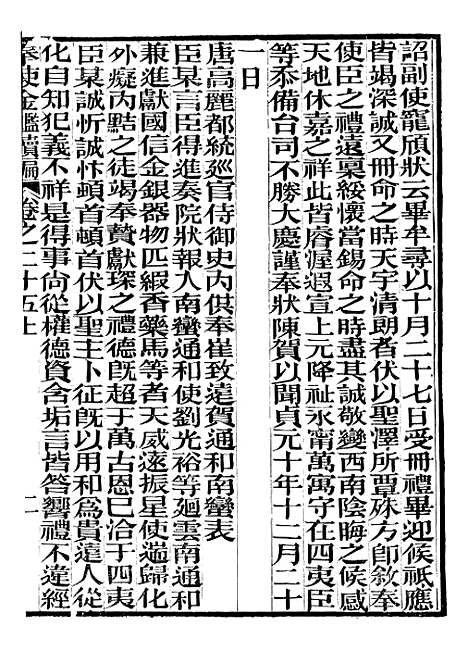 詔副使寵頎狀云畢牟尋以十月二十七日受冊禮畢迎候祗應
皆竭深誠又冊命之時天宇清朗者伏以聖澤所覃殊方卽敘奉
使臣之禮遠稟綏懷當錫命之時盡其誠敬變西南陰晦之候感
天地休嘉之祥此皆睿渥遐宣上元降祉永甯萬寓守在四夷臣
等忝備台司不勝大慶謹奉狀陳賀以聞貞元十年十二月二十
一日
唐高麗都統巡官侍御史內供奉崔致遠賀通和南蠻表
臣某言臣得進奏院狀報入南蠻通和使劉光裕等廻雲南通和
兼進獻國信金銀器物匹緞香藥馬等者天威遠振星使遄歸化
外癡內黠之徒竭奉贄獻琛之禮德旣超于萬古恩巳洽于四夷
臣某誠忻誠忭頓首頓首伏以聖主卜征旣以用和爲貴遠人從
化自知犯義不祥是得事尙從權德資含垢言皆答響禮不違經
奉使金鑑續編 卷之二十五上 二